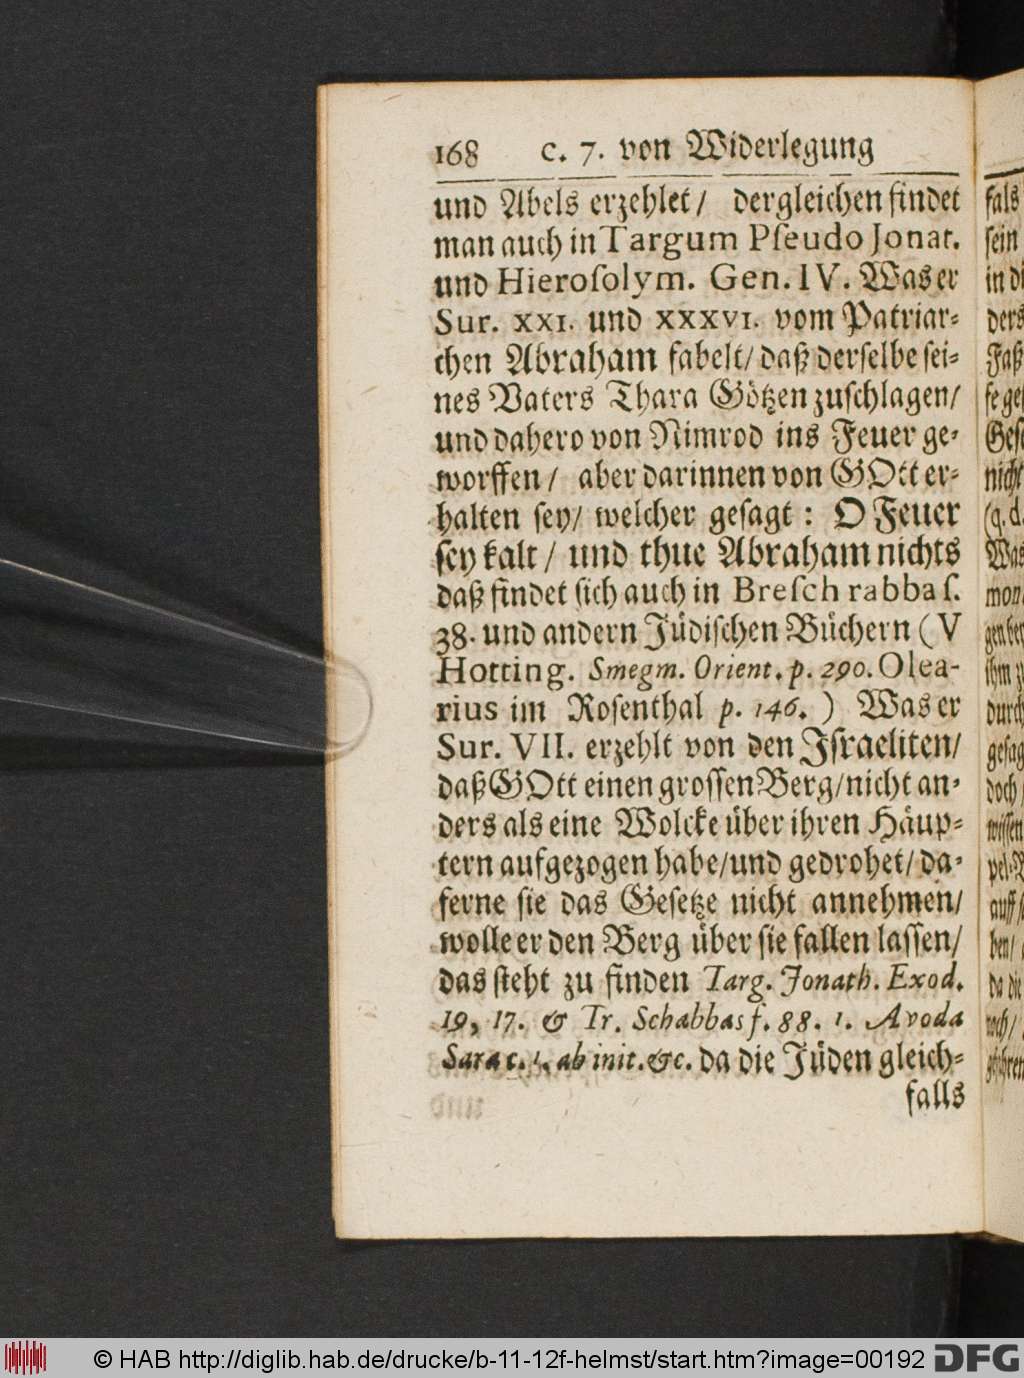 168 c. 7. von Widerlegung
und Abels erzehlet/ dergleichen findet
man auch in Targum Pſeudo Jonat.
und Hieroſolym. Gen. IV. Was er
Sur. XXI. und XXXVI. vom Patriar⸗
chen Abraham fabelt/ daß derſelbe ſei⸗
nes Vaters Thara Götzen zuſchlagen/
und dahero von Nimrod ins Feuer ge⸗
worffen/ aber darinnen von GOtt er⸗
halten ſey/ welcher geſagt: O Feuer
ſey kalt/ und thue Abraham nichts
daß findet ſich auch in Breſch rabba ſ.
38. und andern Jüdiſchen Büchern (V
Hotting. Smegm. Orient. p. 290. Olea-
rius im Roſenthal p. 146. ) Was er
Sur. VII. erzehlt von den Iſraeliten/
daß GOtt einen groſſen Berg/ nicht an⸗
ders als eine Wolcke über ihren Häup⸗
tern aufgezogen habe/ und gedrohet/ da⸗
ferne ſie das Geſetze nicht annehmen/
wolle er den Berg über ſie fallen laſſen/
das ſteht zu finden Targ. Jonath. Exod.
19, 17. & Tr. Schabbas f. 88. 1. Avoda
Sara c. 1. ab init. &c. da die Jüden gleich⸗
falls
fals
ſein
in di
ders
Faß
ſe ge
Geſ
nicht
(q. d.
Was
mon
gen ber
ihm z
durch
geſag
doch/
wiſſen
pel-
auff
ben/
da die
noch/
© HAB http://diglib.hab.de/drucke/b-11-12f-helmst/start.htm?image=00192 DFG